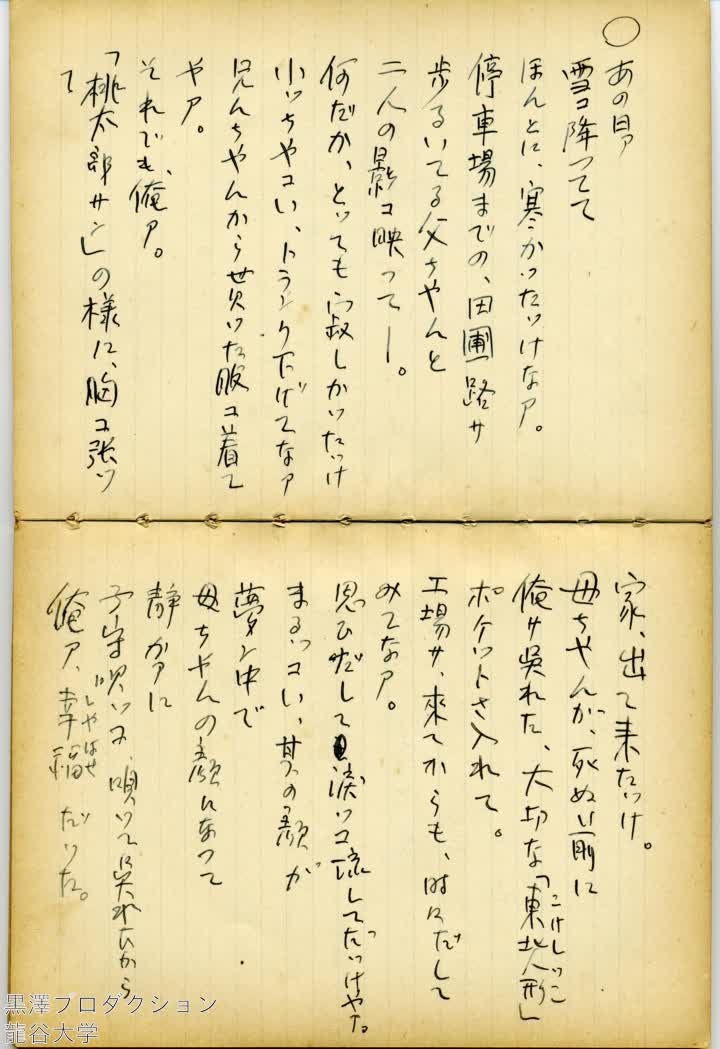 ○
あの日ァ
雪コ降つてて
ほんとに、寒かつたいけなァ。
停車場までの、田圃路サ
歩るいてる父ちやんと
二人の影コ映つてー。
何だか、とつても寂しかいたいけ
小いちやコい、トランク下げてなァ
兄んちやんから貰いた服コ着て
やァ。
それでも、俺ァ。
「桃太郎サン」の様に、胸コ張ツ
て
家、出て来たいけ。
母ちやんが、死ぬい前に
俺サ呉れた、大切な「東北人形」
こけしツこ
ポケットさ入れて。
工場サ、來てからも、時にだして
みてなァ。
思ひだして涙ツコ流してだつけやァ。
まるツコい、其の顔が
夢ン中で
母ちやんの顔になつて
静かァに
子守唄ツコ唄いて呉れたから
俺ァ、幸福だいた。
しやはせ
黒澤プロダクション
龍谷大学